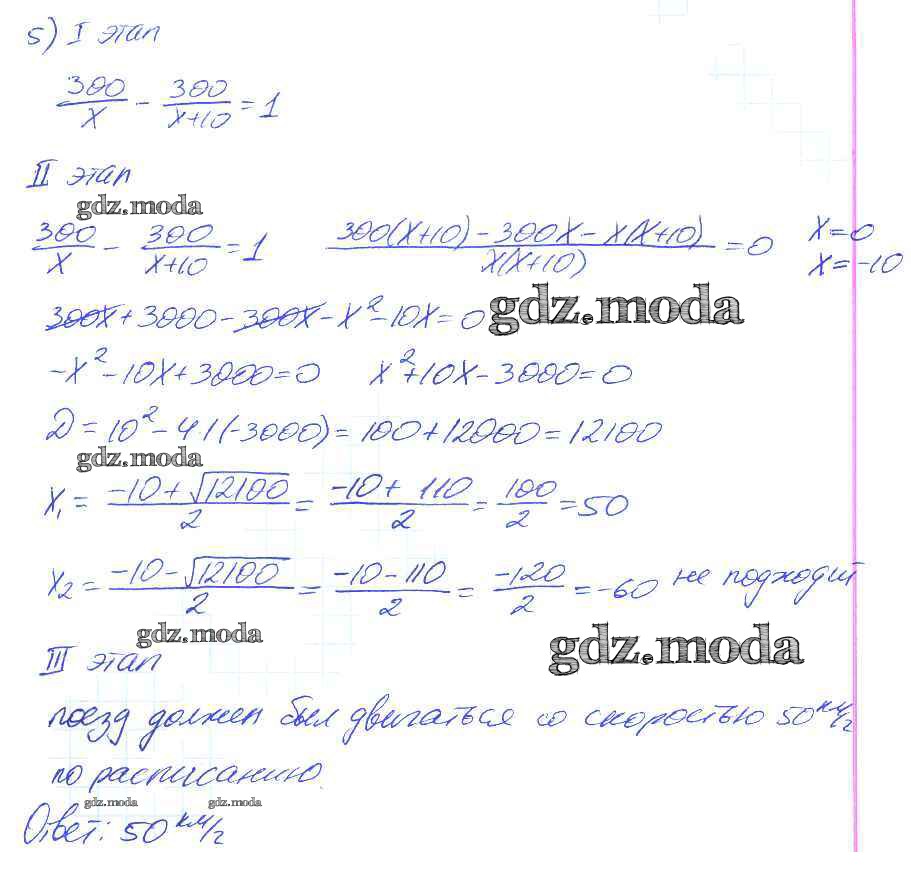 5) I этап
300/x - 300/(x+10) = 1
II этап
gdz.moda
300/x - 300/(x+10) = 1   (300(x+10) - 300x - x(x+10))/(x(x+10)) = 0   x=0
x=-10
300x + 3000 - 300x - x² - 10x = 0 gdz.moda
-x² - 10x + 3000 = 0   x² + 10x - 3000 = 0
D = 10² - 4·1(-3000) = 100 + 12000 = 12100
gdz.moda
x₁ = (-10 + √12100)/2 = (-10 + 110)/2 = 100/2 = 50
x₂ = (-10 - √12100)/2 = (-10 - 110)/2 = -120/2 = -60 не подходит
gdz.moda gdz.moda
III этап
поезд должен был двигаться со скоростью 50 км/г
по расписанию.
gdz.moda gdz.moda
Ответ: 50 км/г